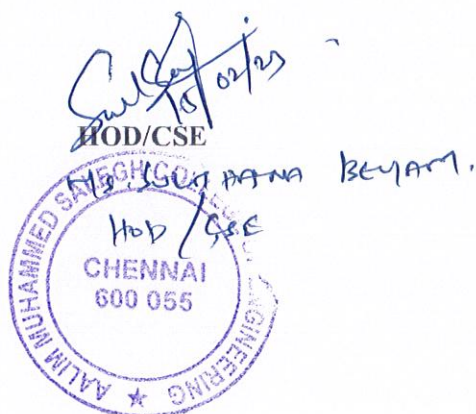 15/02/23
HOD/CSE
BEGAM.
HOD/CSE
AALIM MUHAMMED SALEGH COLLEGE OF ENGINEERING
CHENNAI
600 055